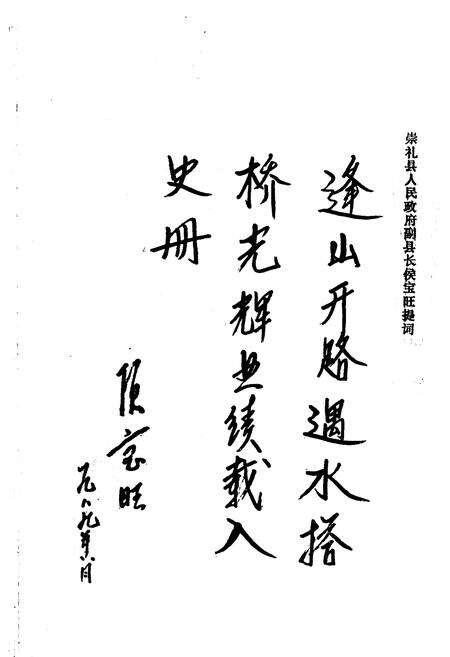 崇礼县人民政府副县长侯宝旺提词
逢山开路遇水搭
桥光辉业绩载入
史册
侯宝旺
一九八九年六月